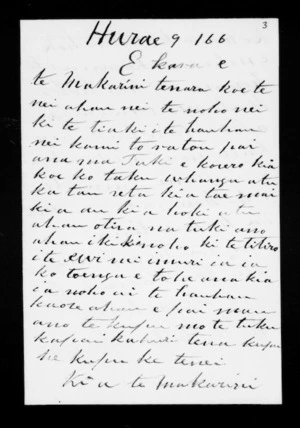 3
Hurae 9 166
E hara e
te Makarini tenara koe te
nei ahau nei te noho nei
ki te tiaki i te hauhau
nei kami to ratou pai
ana ma Tuki e korero kia
koe ko taku whanga atu
ka tau reta kia tae mai
kia au kia hoki atu
ahau otira na tuki ano
ahau i ki noho ki te titiro
i te iwi nei i muri ia ia
ko toenga e tohe ana kia
ia noho ai te hauhau
kaore ahau e pai mau
ano te kupu mo te tuku
ka pai kahori tena kupu
he kupu ke tenei
Ki a te Makarini